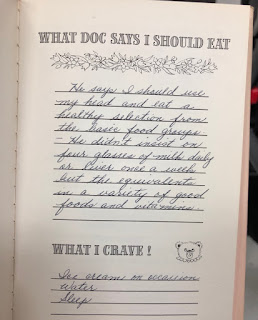 WHAT DOC SAYS I SHOULD EAT
He says I should use
my head and eat a
healthy selection from
the basic food groups.
- He didn't insist on
four glasses of milk daily
or liver once a week
but the equivalents
in a variety of good
foods and vitamins.
WHAT I CRAVE!
Ice cream on occasion
Water
Sleep